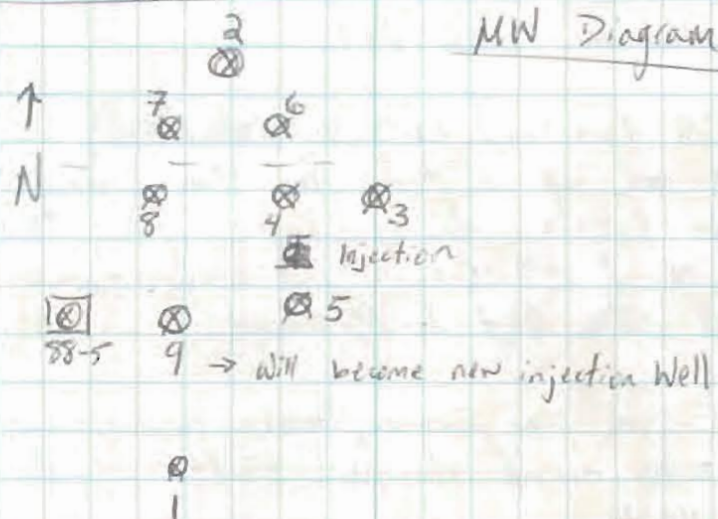 MW Diagram
2
7 6
N
8 4 3
Injection
5
88-5 9 → will become new injection well
1